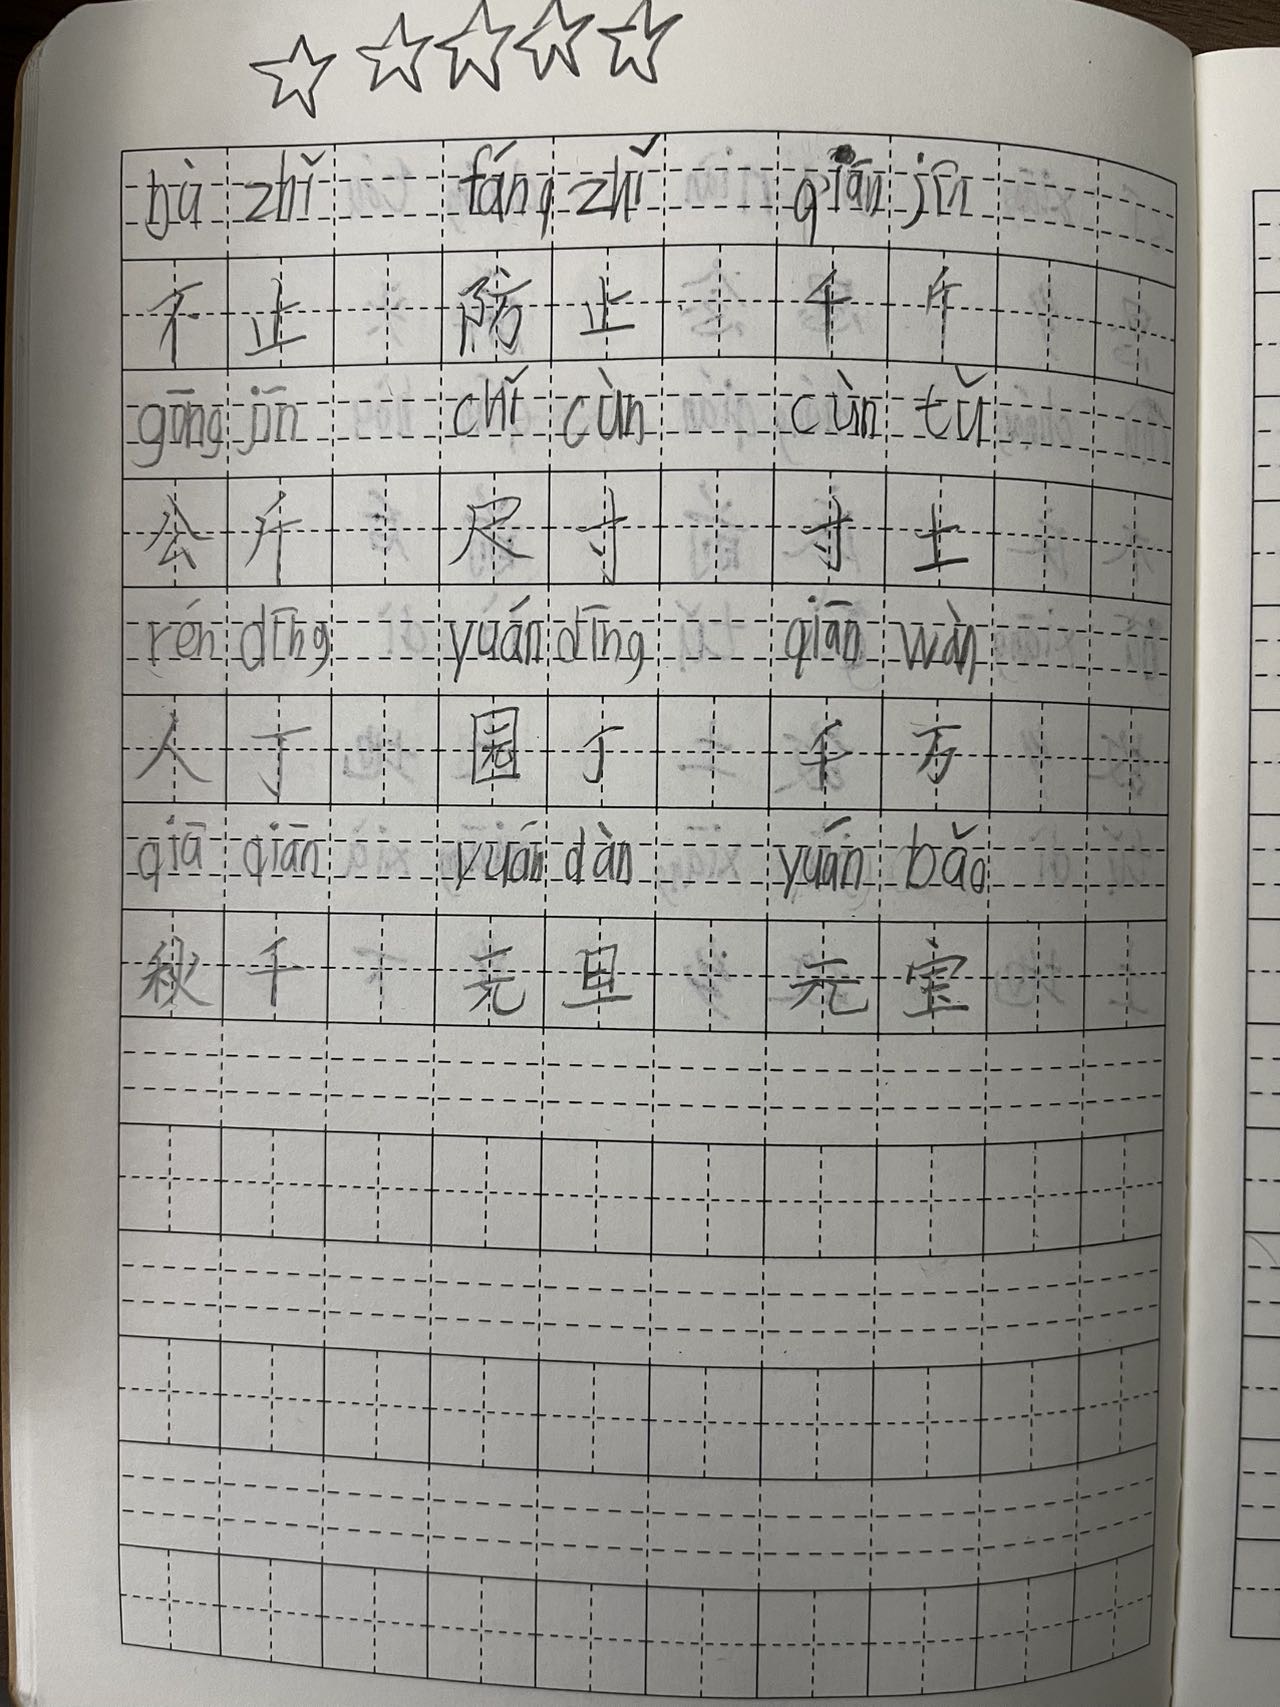 bù zhǐ fáng zhǐ qiān jīn
不止 防止 千斤
gōng jīn chǐ cùn cùn tǔ
公斤 尺寸 寸土
rén dīng yuán dīng qiān wàn
人丁 园丁 千万
qiā qiān yuán dàn yuán bǎo
秋千 元旦 元宝